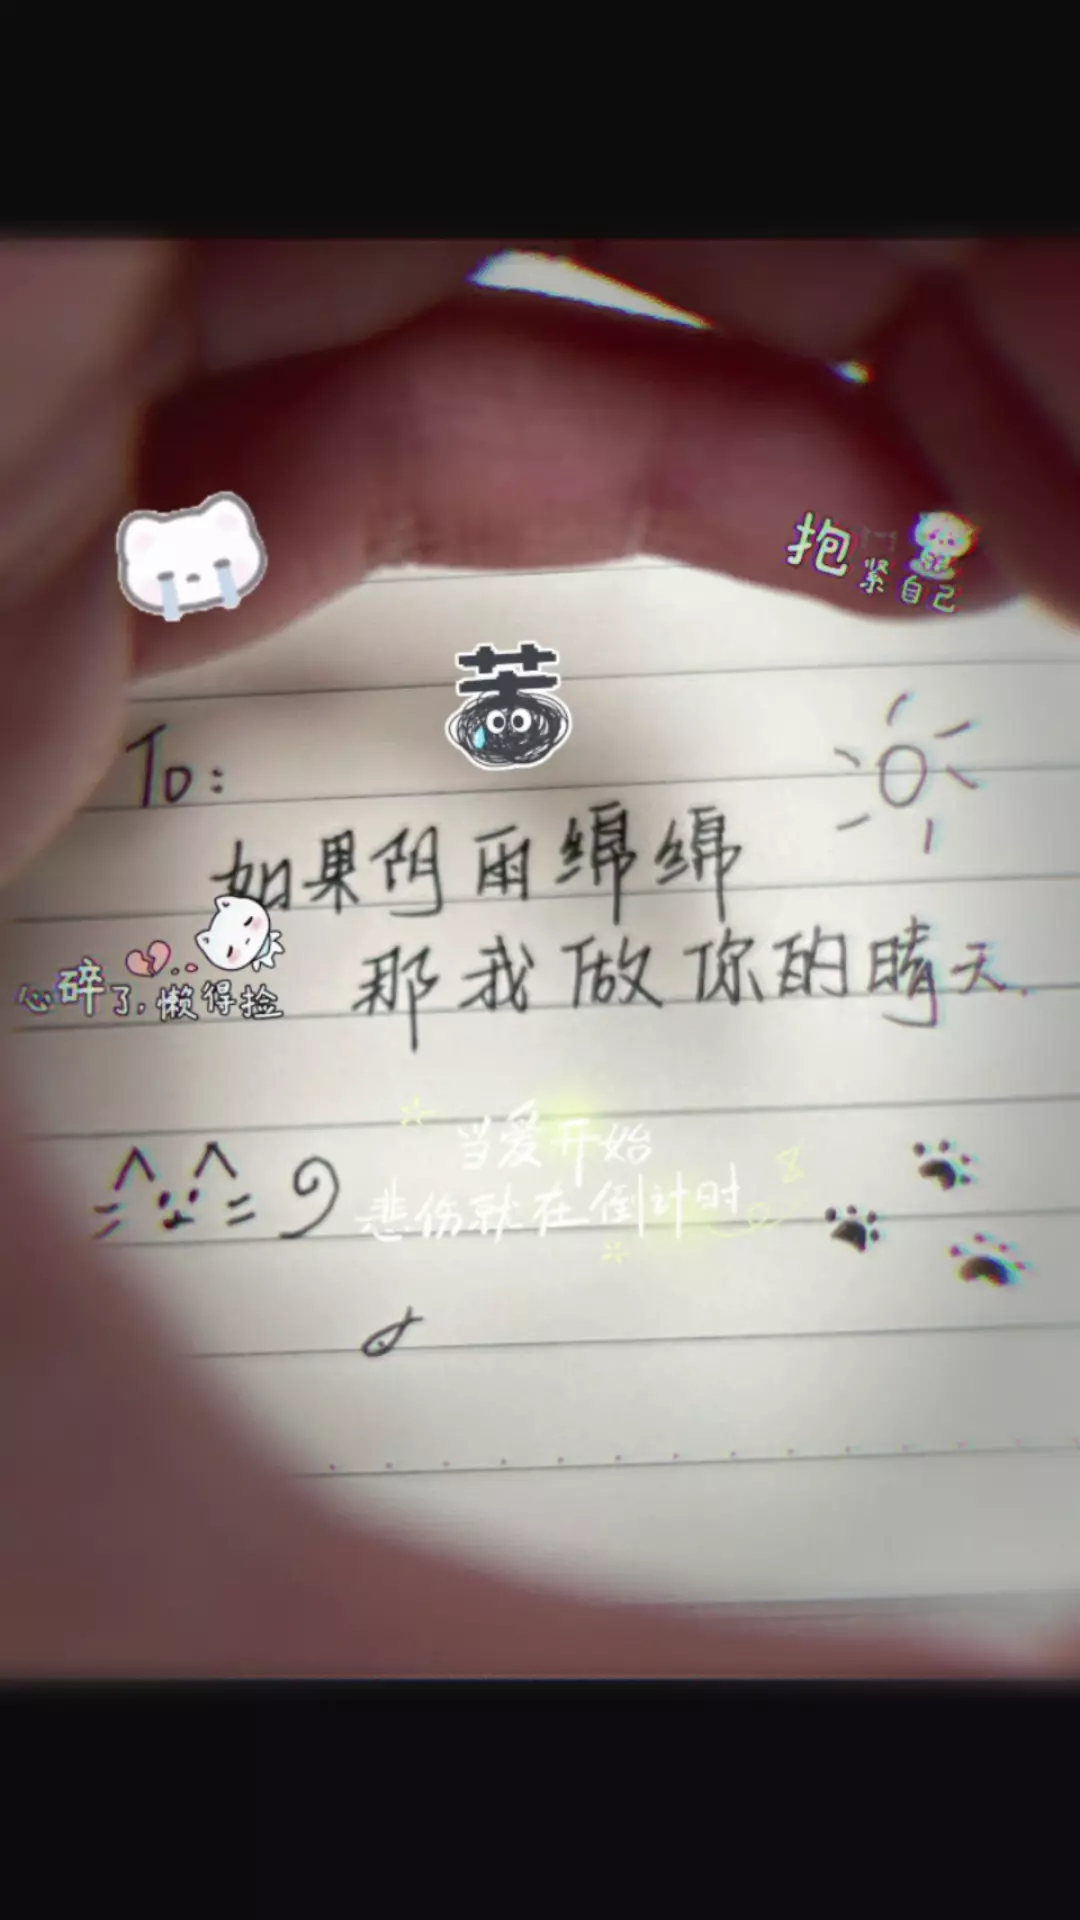 抱紧自己
苦
To:
如果阴雨绵绵
那我做你的晴天.
心碎了,懒得捡
当爱开始
悲伤就在倒计时